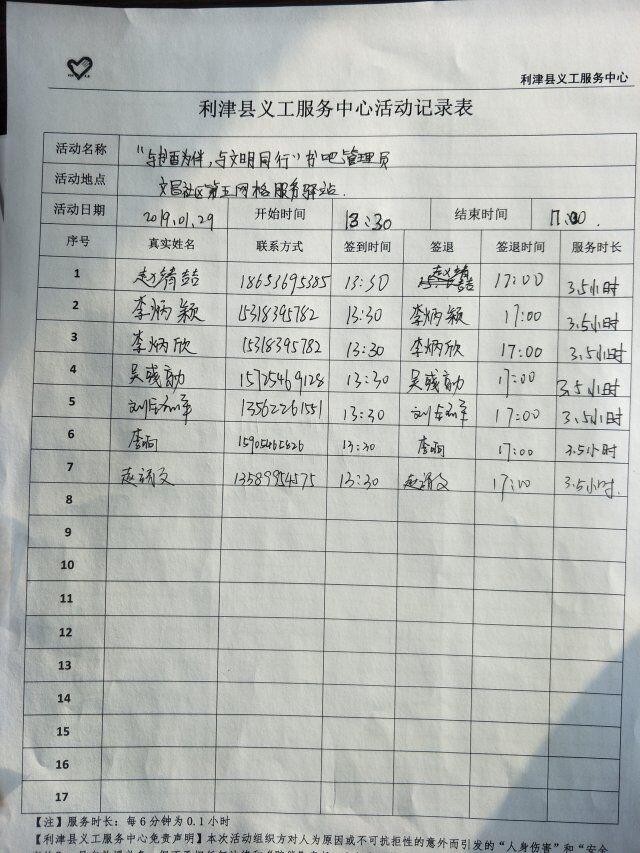 利津县义工服务中心
利津县义工服务中心活动记录表
活动名称 "与书香为伴，与文明同行"书吧管理员
活动地点 文昌社区第五网格服务驿站.
活动日期 2019.01.29 开始时间 13:30 结束时间 17:00.
序号 真实姓名 联系方式 签到时间 签退 签退时间 服务时长
1 18653695385 13:30 17:00 3.5小时
2 李炳颖 15318395782 13:30 李炳颖 17:00 3.5小时
3 李炳欣 15318395782 13:30 李炳欣 17:00 3.5小时
4 15725469128 13:30 17:00 3.5小时
5 13562261551 13:30 17:00 3.5小时
6 13:30 17:00 3.5小时
7 13589954575 13:30 17:00 3.5小时.
8
9
10
11
12
13
14
15
16
17
【注】服务时长：每6分钟为0.1小时
【利津县义工服务中心免责声明】本次活动组织方对人为原因或不可抗拒性的意外而引发的"人身伤害"和"安全